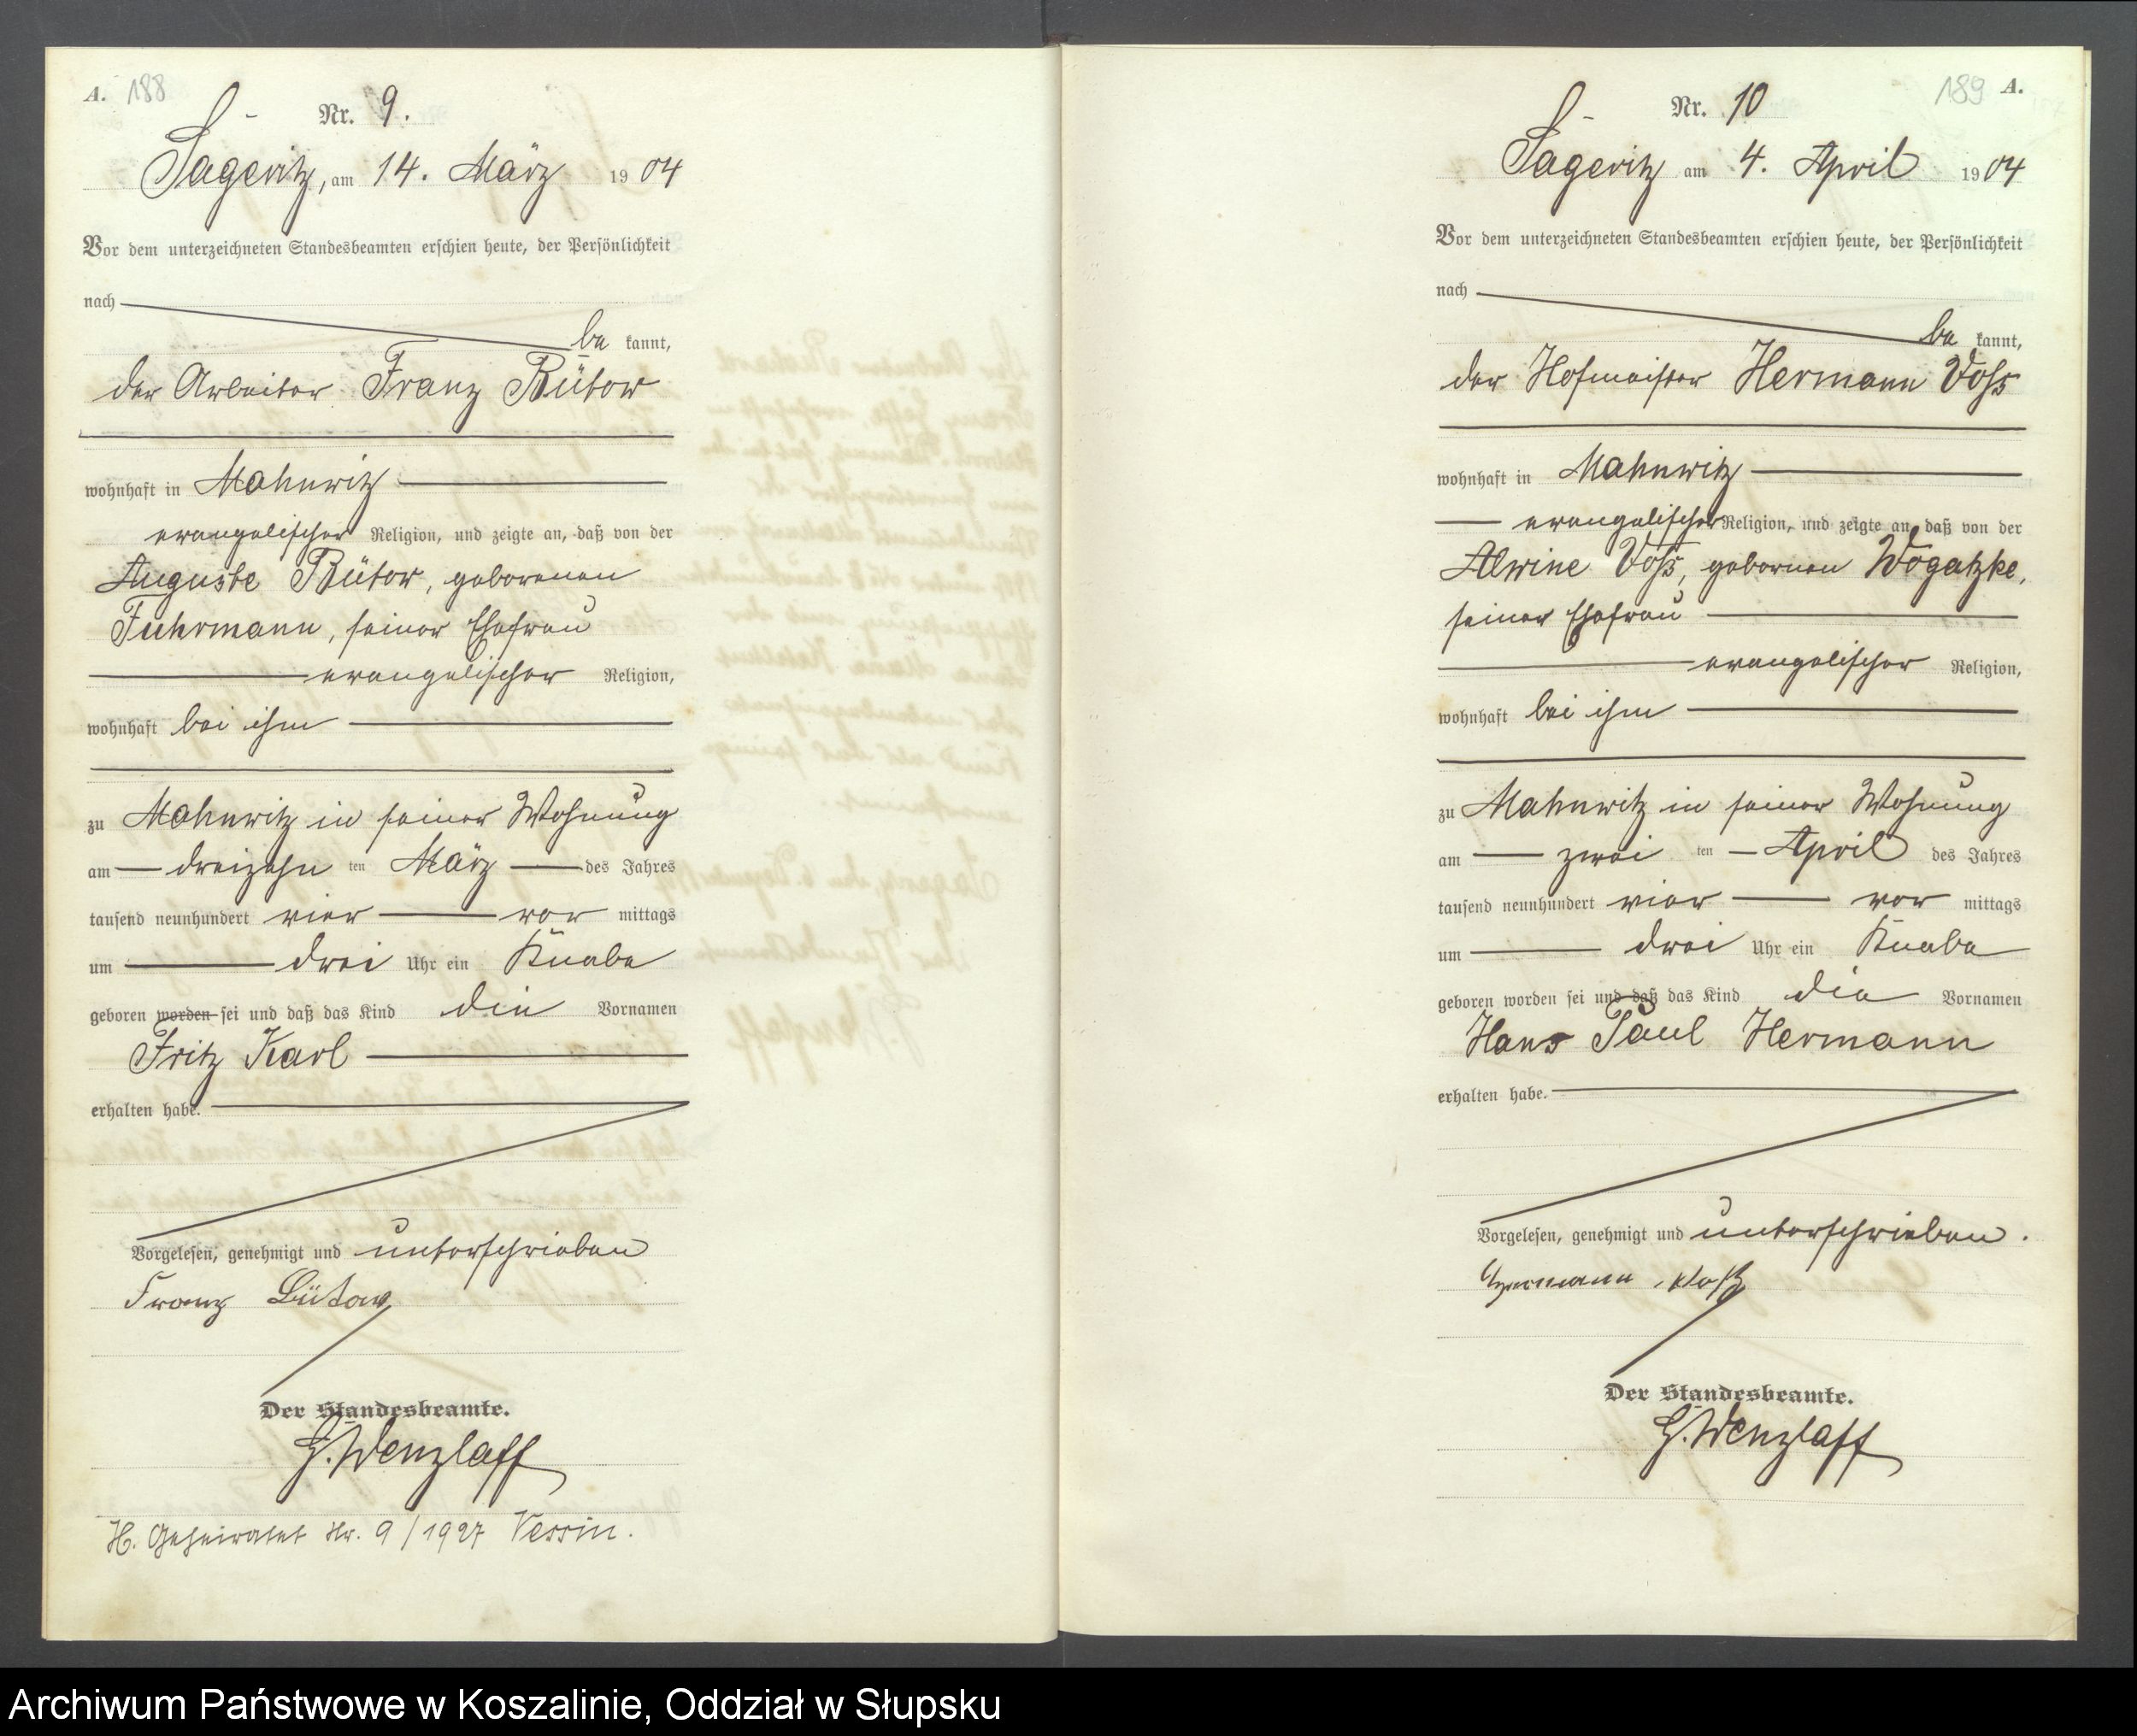 A. 188
Nr. 9.
Sageritz, am 14. März 1904
Vor dem unterzeichneten Standesbeamten erschien heute, der Persönlichkeit
nach
be kannt,
der Arbeiter Franz Bütow
wohnhaft in Mahnwitz
evangelischer Religion, und zeigte an, daß von der
Auguste Bütow, geborenen
Fuhrmann, seiner Ehefrau
evangelischer Religion,
wohnhaft bei ihm
zu Mahnwitz in seiner Wohnung
am dreizehn ten März des Jahres
tausend neunhundert vier vor mittags
um drei Uhr ein Knabe
geboren worden sei und daß das Kind die Vornamen
Fritz Karl
erhalten habe.
Vorgelesen, genehmigt und unterschrieben
Franz Bütow
Der Standesbeamte.
G. Wenzlaff
H. Geheiratet Nr. 9/1927 Vessin.
189 A.
Nr. 10
Sageritz am 4. April 1904
Vor dem unterzeichneten Standesbeamten erschien heute, der Persönlichkeit
nach
be kannt,
der Hofmeister Hermann Voß
wohnhaft in Mahnwitz
evangelischer Religion, und zeigte an, daß von der
Alwine Voß, gebornen Wogatzke,
seiner Ehefrau
evangelischer Religion,
wohnhaft bei ihm
zu Mahnwitz in seiner Wohnung
am zwei ten April des Jahres
tausend neunhundert vier vor mittags
um drei Uhr ein Knabe
geboren worden sei und daß das Kind die Vornamen
Hans Paul Hermann
erhalten habe.
Vorgelesen, genehmigt und unterschrieben.
Hermann Voß
Der Standesbeamte.
G. Wenzlaff
Archiwum Państwowe w Koszalinie, Oddział w Słupsku